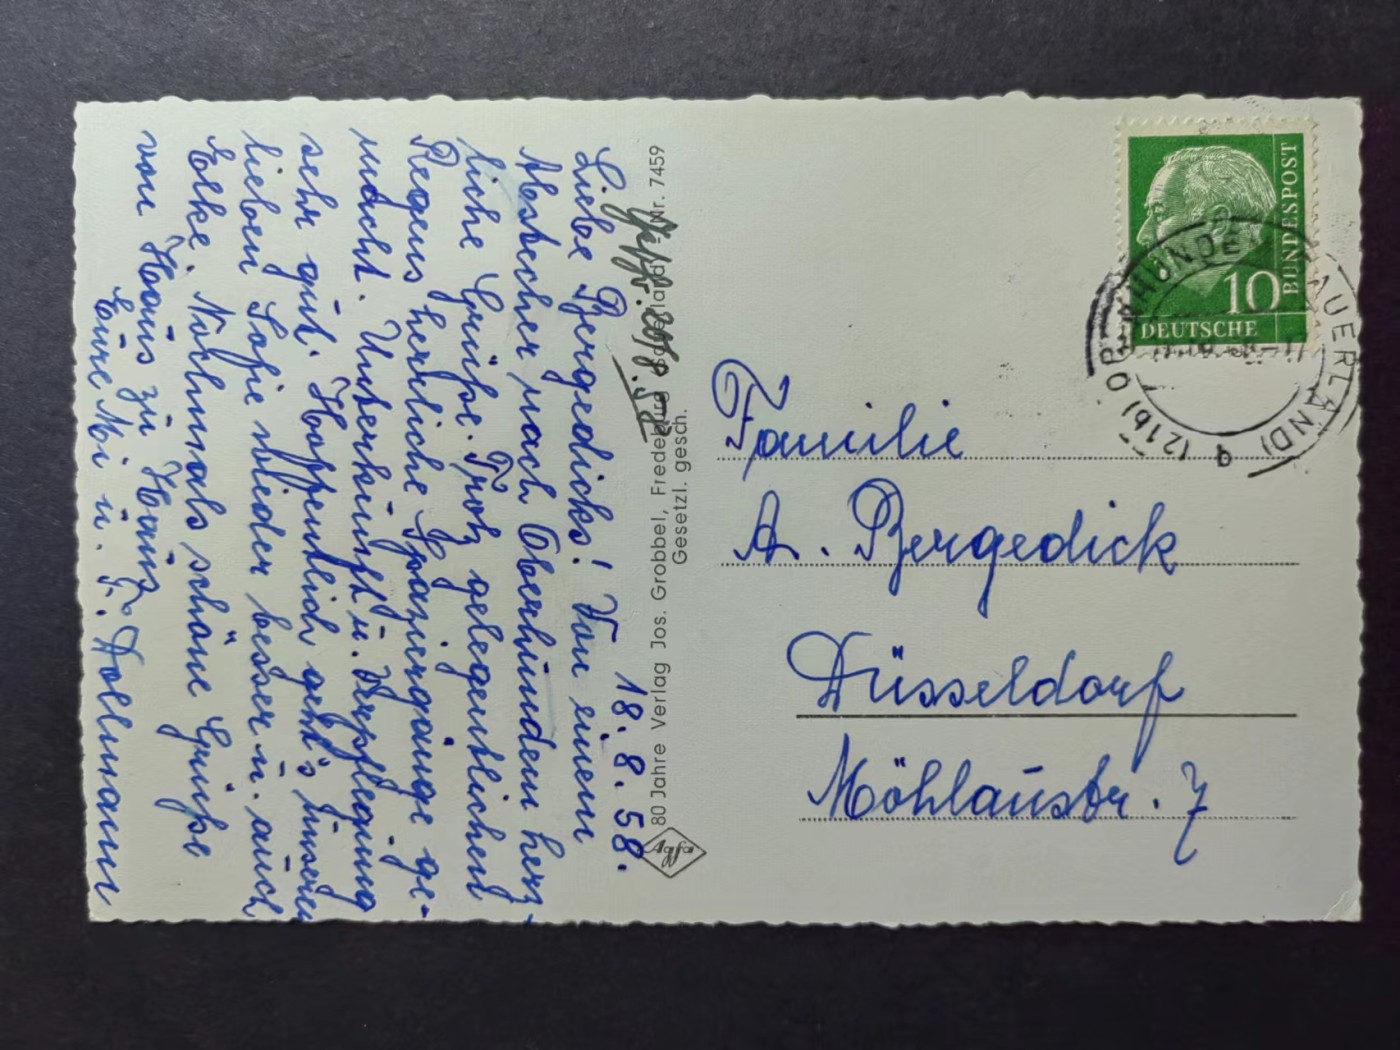 18. 8. 58.
Liebe Bergedicks! Von einem
Abstecher nach Oberhundem herz-
liche Grüße. Trotz gelegentlichen
Regens herrliche Spaziergänge ge-
macht. Unterkunft u. Verpflegung
sehr gut. Hoffentlich geht's Eurer
lieben Sofie wieder besser u. auch
Elke. Nochmals schöne Grüße
von Haus zu Haus
Eure Mi u. F. Dollmann
20/8. 58
80 Jahre Verlag Jos. Grobbel, Fredeburg Sauerland Nr. 7459
Gesetzl. gesch.
Agfa
10
DEUTSCHE
BUNDESPOST
(21b) OBERHUNDEM (SAUERLAND)
Familie
A. Bergedick
Düsseldorf
Möhlaustr. 7